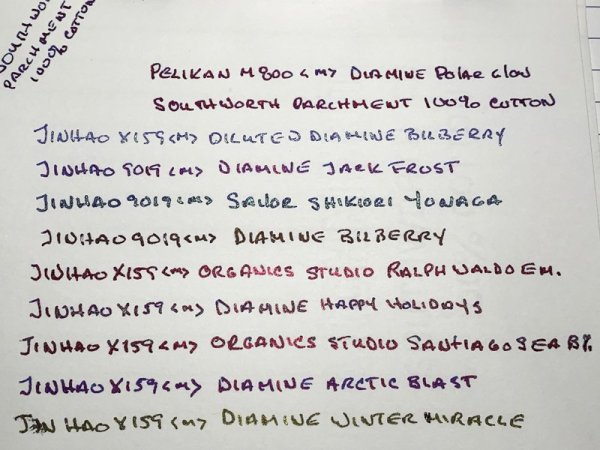 SOUTHWO
PARCHMENT
100% COTTON
PELIKAN M800 <M> DIAMINE POLAR GLOW
SOUTHWORTH PARCHMENT 100% COTTON
JINHAO X159 <M> DILUTED DIAMINE BILBERRY
JINHAO 9019 <M> DIAMINE JACK FROST
JINHAO 9019 <M> SAILOR SHIKIORI YONAGA
JINHAO 9019 <M> DIAMINE BILBERRY
JINHAO X159 <M> ORGANICS STUDIO RALPH WALDO EM.
JINHAO X159 <M> DIAMINE HAPPY HOLIDAYS
JINHAO X159 <M> ORGANICS STUDIO SANTIAGO SEA
JINHAO X159 <M> DIAMINE ARCTIC BLAST
JINHAO X159 <M> DIAMINE WINTER MIRACLE